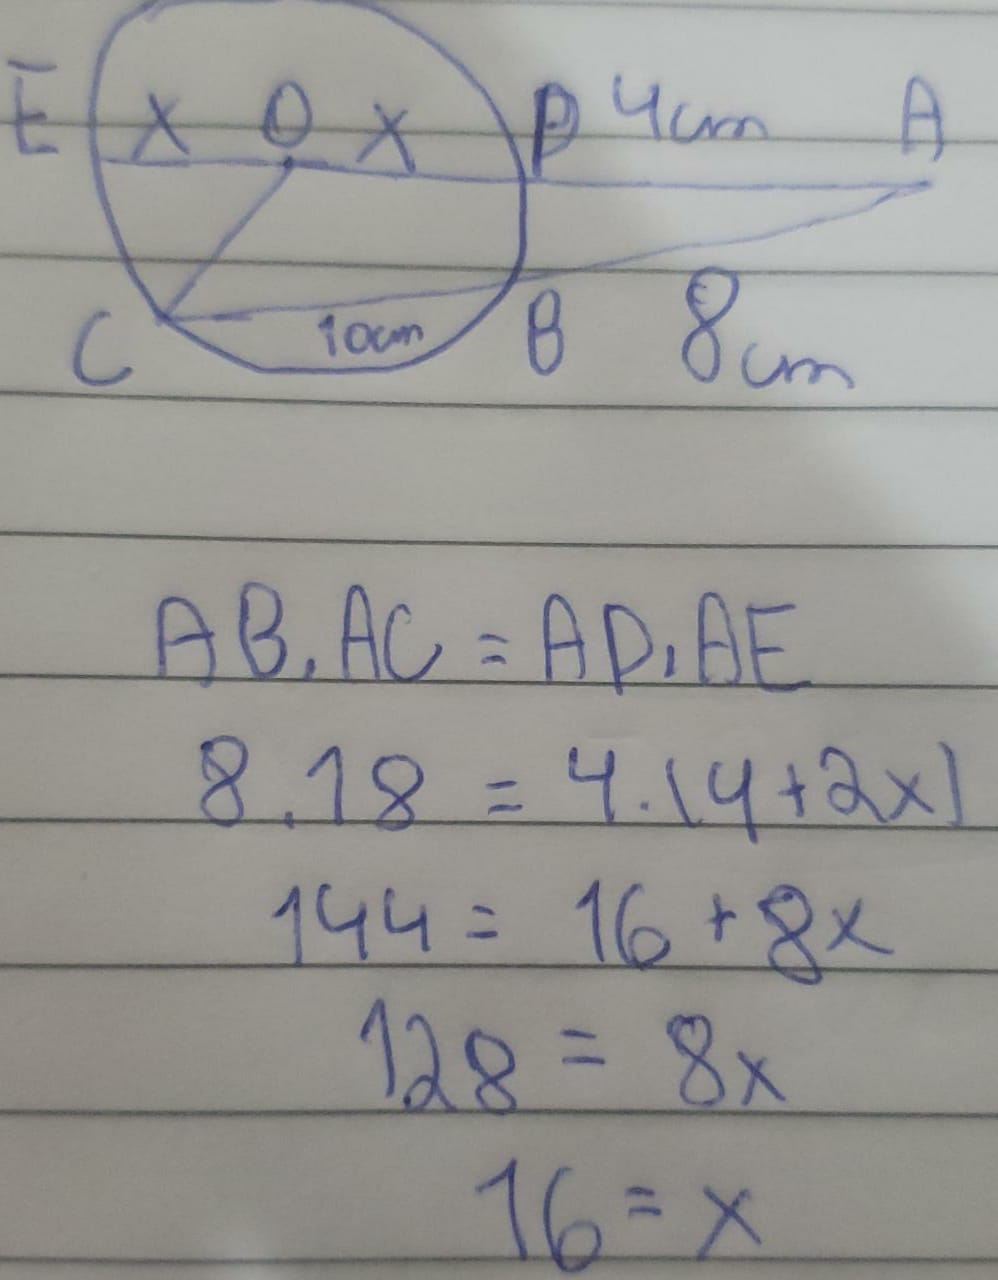 E X O X D 4cm A
C 10cm B 8cm
AB.AC = AD.AE
8.18 = 4.(4+2x)
144 = 16 + 8x
128 = 8x
16 = x